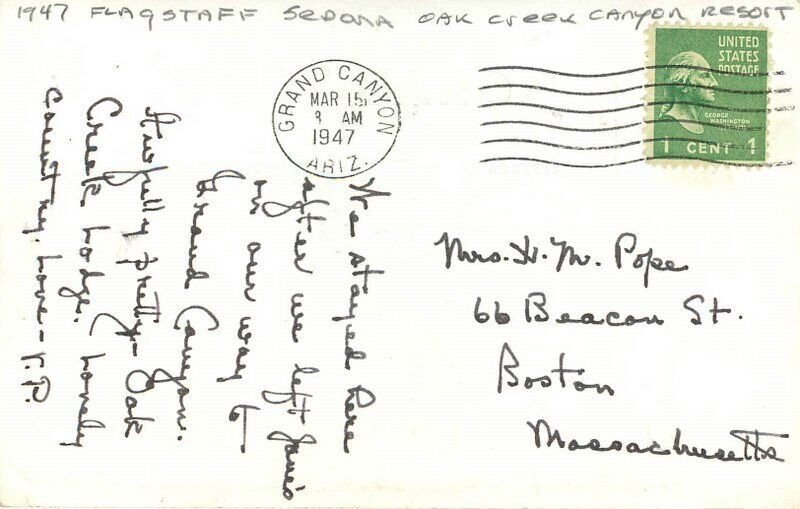 1947 FLAGSTAFF SEDONA OAK CREEK CANYON RESORT
GRAND CANYON
MAR 15
8 AM
1947
ARIZ.
UNITED
STATES
POSTAGE
GEORGE
WASHINGTON
1 CENT 1
We stayed here
after we left Jane's
on our way to
Grand Canyon.
Awfully pretty - Oak
Creek Lodge. Lovely
country. Love - V.P.
Mrs. H. M. Pope
66 Beacon St.
Boston
Massachusetts